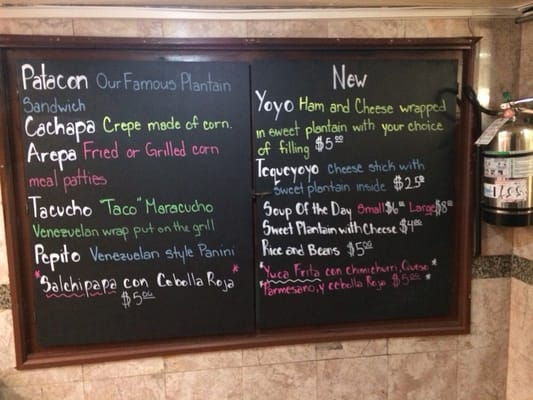 Patacon Our Famous Plantain
Sandwich
Cachapa Crepe made of corn.
Arepa Fried or Grilled corn
meal patties
Tacucho "Taco" Maracucho
Venezuelan wrap put on the grill
Pepito Venezuelan style Panini
*Salchipapa con Cebolla Roja*
$5.00
New
Yoyo Ham and Cheese wrapped
in sweet plantain with your choice
of filling $5.00
Tequeyoyo cheese stick with
sweet plantain inside $2.50
Soup Of the Day Small $6.00 Large $8.00
Sweet Plantain with Cheese $4.00
Rice and Beans $5.00
*Yuca Frita con chimichurri, Queso*
*Parmesano, y cebolla Roja $5.00*